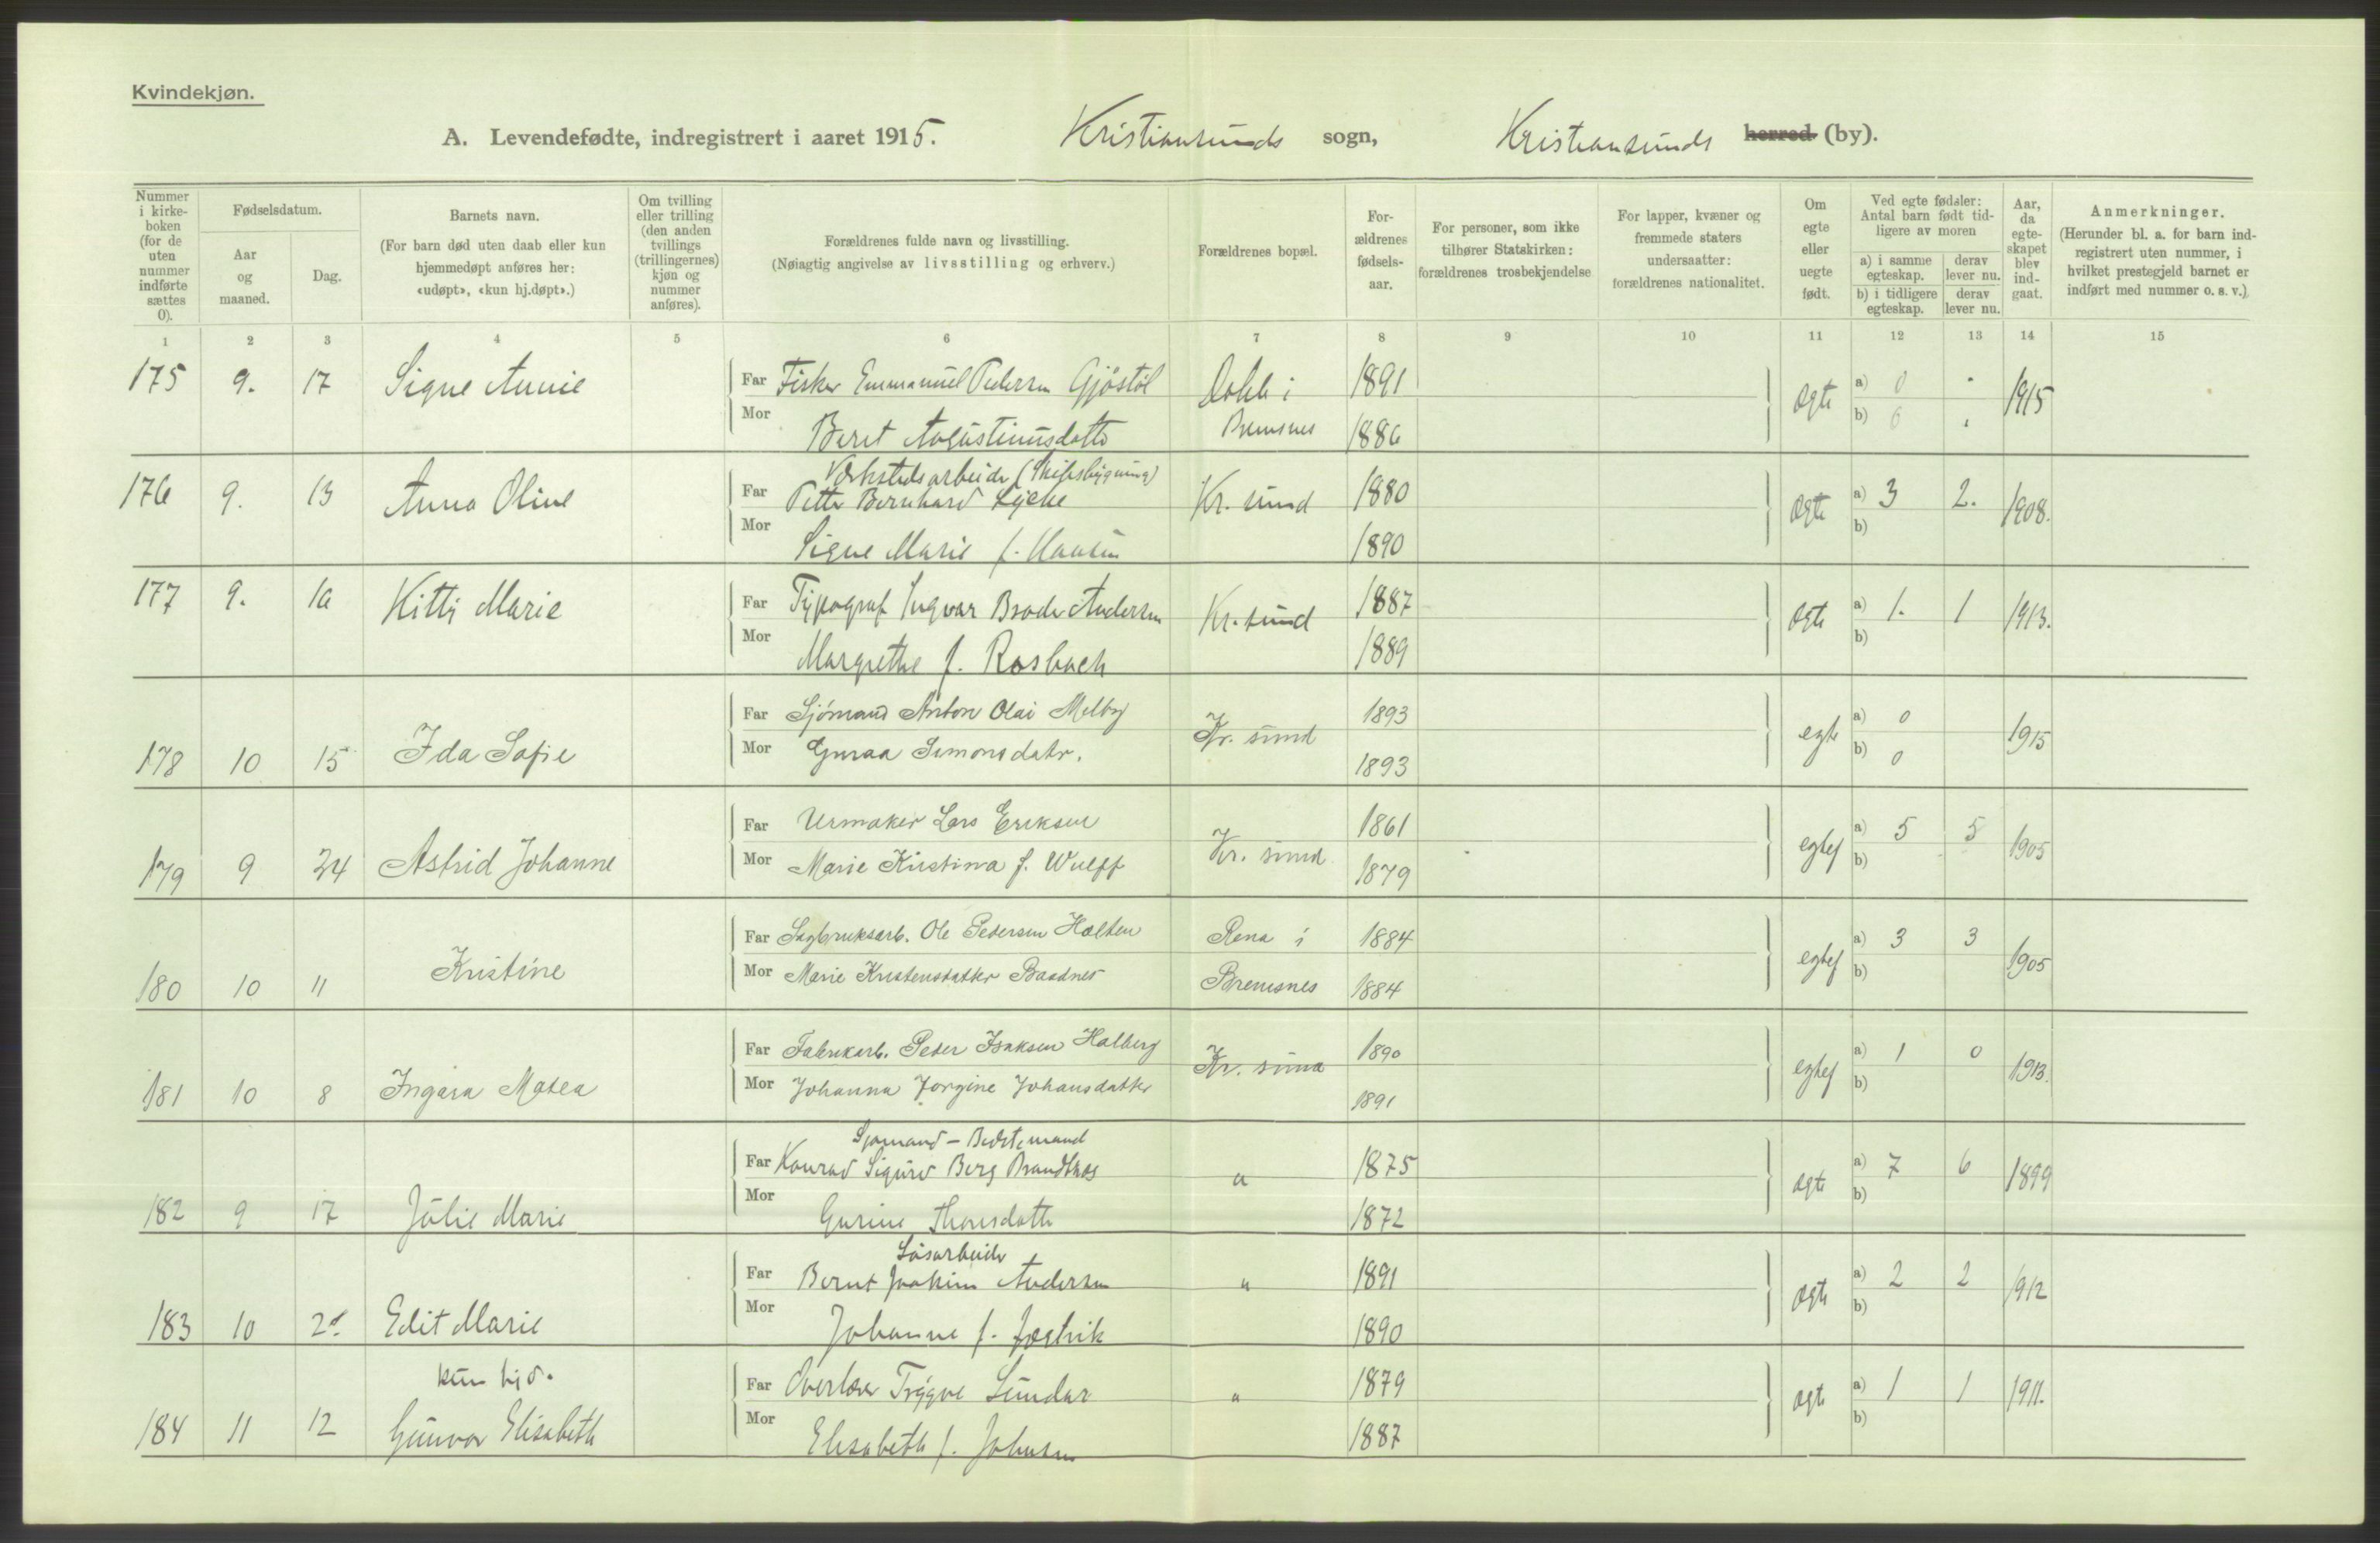 Kvindekjøn.
A. Levendefødte, indregistrert i aaret 1915. Kristiansunds sogn, Kristiansunds herred (by).
Nummer i kirkeboken (for de uten nummer indførte sættes 0).
Fødselsdatum.
Aar og maaned.
Dag.
Barnets navn.
(For barn død uten daab eller kun hjemmedøpt anføres her: «udøpt», «kun hj.døpt».)
Om tvilling eller trilling (den anden tvillings (trillingernes) kjøn og nummer anføres).
Forældrenes fulde navn og livsstilling.
(Nøiagtig angivelse av livsstilling og erhverv.)
Forældrenes bopæl.
Forældrenes fødselsaar.
For personer, som ikke tilhører Statskirken: forældrenes trosbekjendelse
For lapper, kvæner og fremmede staters undersaatter: forældrenes nationalitet.
Om egte eller uegte født.
Ved egte fødsler: Antal barn født tidligere av moren
a) i samme egteskap. derav lever nu.
b) i tidligere egteskap. derav lever nu.
Aar, da egteskapet blev indgaat.
Anmerkninger.
(Herunder bl. a. for barn indregistrert uten nummer, i hvilket prestegjeld barnet er indført med nummer o. s. v.)
1 2 3 4 5 6 7 8 9 10 11 12 13 14 15
175 9. 17 Signe Annie Far Fisker Emmanuel Pedersen Gjøstøl Dahle i 1891 Ægte a) 0 1915
Mor Beret Augustinusdatter Bremsnes 1886 b) 0
Værkstedsarbeider (Skibsbygning)
176 9. 13 Anna Oline Far Petter Bernhard Lyche Kr. sund 1880 Ægte a) 3 2. 1908.
Mor Signe Marie f. Hansen 1890 b)
177 9. 10 Kitty Marie Far Typograf Ingvar Broder Andersen Kr. sund 1887 Ægte a) 1. 1 1913.
Mor Margrethe f. Rosbach 1889 b)
178 10 15 Ida Sofie Far Sjömand Anton Olai Melby Kr. sund 1893 egte a) 0 1915
Mor Guraa Simonsdatr. 1893 b) 0
179 9 24 Astrid Johanne Far Urmaker Lars Eriksen Kr. sund 1861 egtef a) 5 5 1905
Mor Marie Kirstina f. Wulff 1879 b)
180 10 11 Kristine Far Sagbruksarb. Ole Pedersen Halten Rena i 1884 egtef a) 3 3 1905
Mor Marie Kristensdatter Baadnes Bremsnes 1884 b)
181 10 8 Ingara Matea Far Fabrikarb. Peder Isaksen Halberg Kr. sund 1890 egtef a) 1 0 1913.
Mor Johanna Jorgine Johansdatter 1891 b)
Sjømand - Bedstemand
182 9 17 Julie Marie Far Konrad Sigurd Berg Brandtnæs " 1875 Ægte a) 7 6 1899
Mor Gurine Thorsdatter 1872 b)
Løsarbeider
183 10 2 Edit Marie Far Bernt Joakim Andersen " 1891 Ægte a) 2 2 1912
Mor Johanne f. 1890 b)
kun hjd.
184 11 12 Gunvor Elisabeth Far Overlærer Trygve Sundar " 1879 Ægte a) 1 1 1911.
Mor Elisabeth f. Johnsen 1887 b)